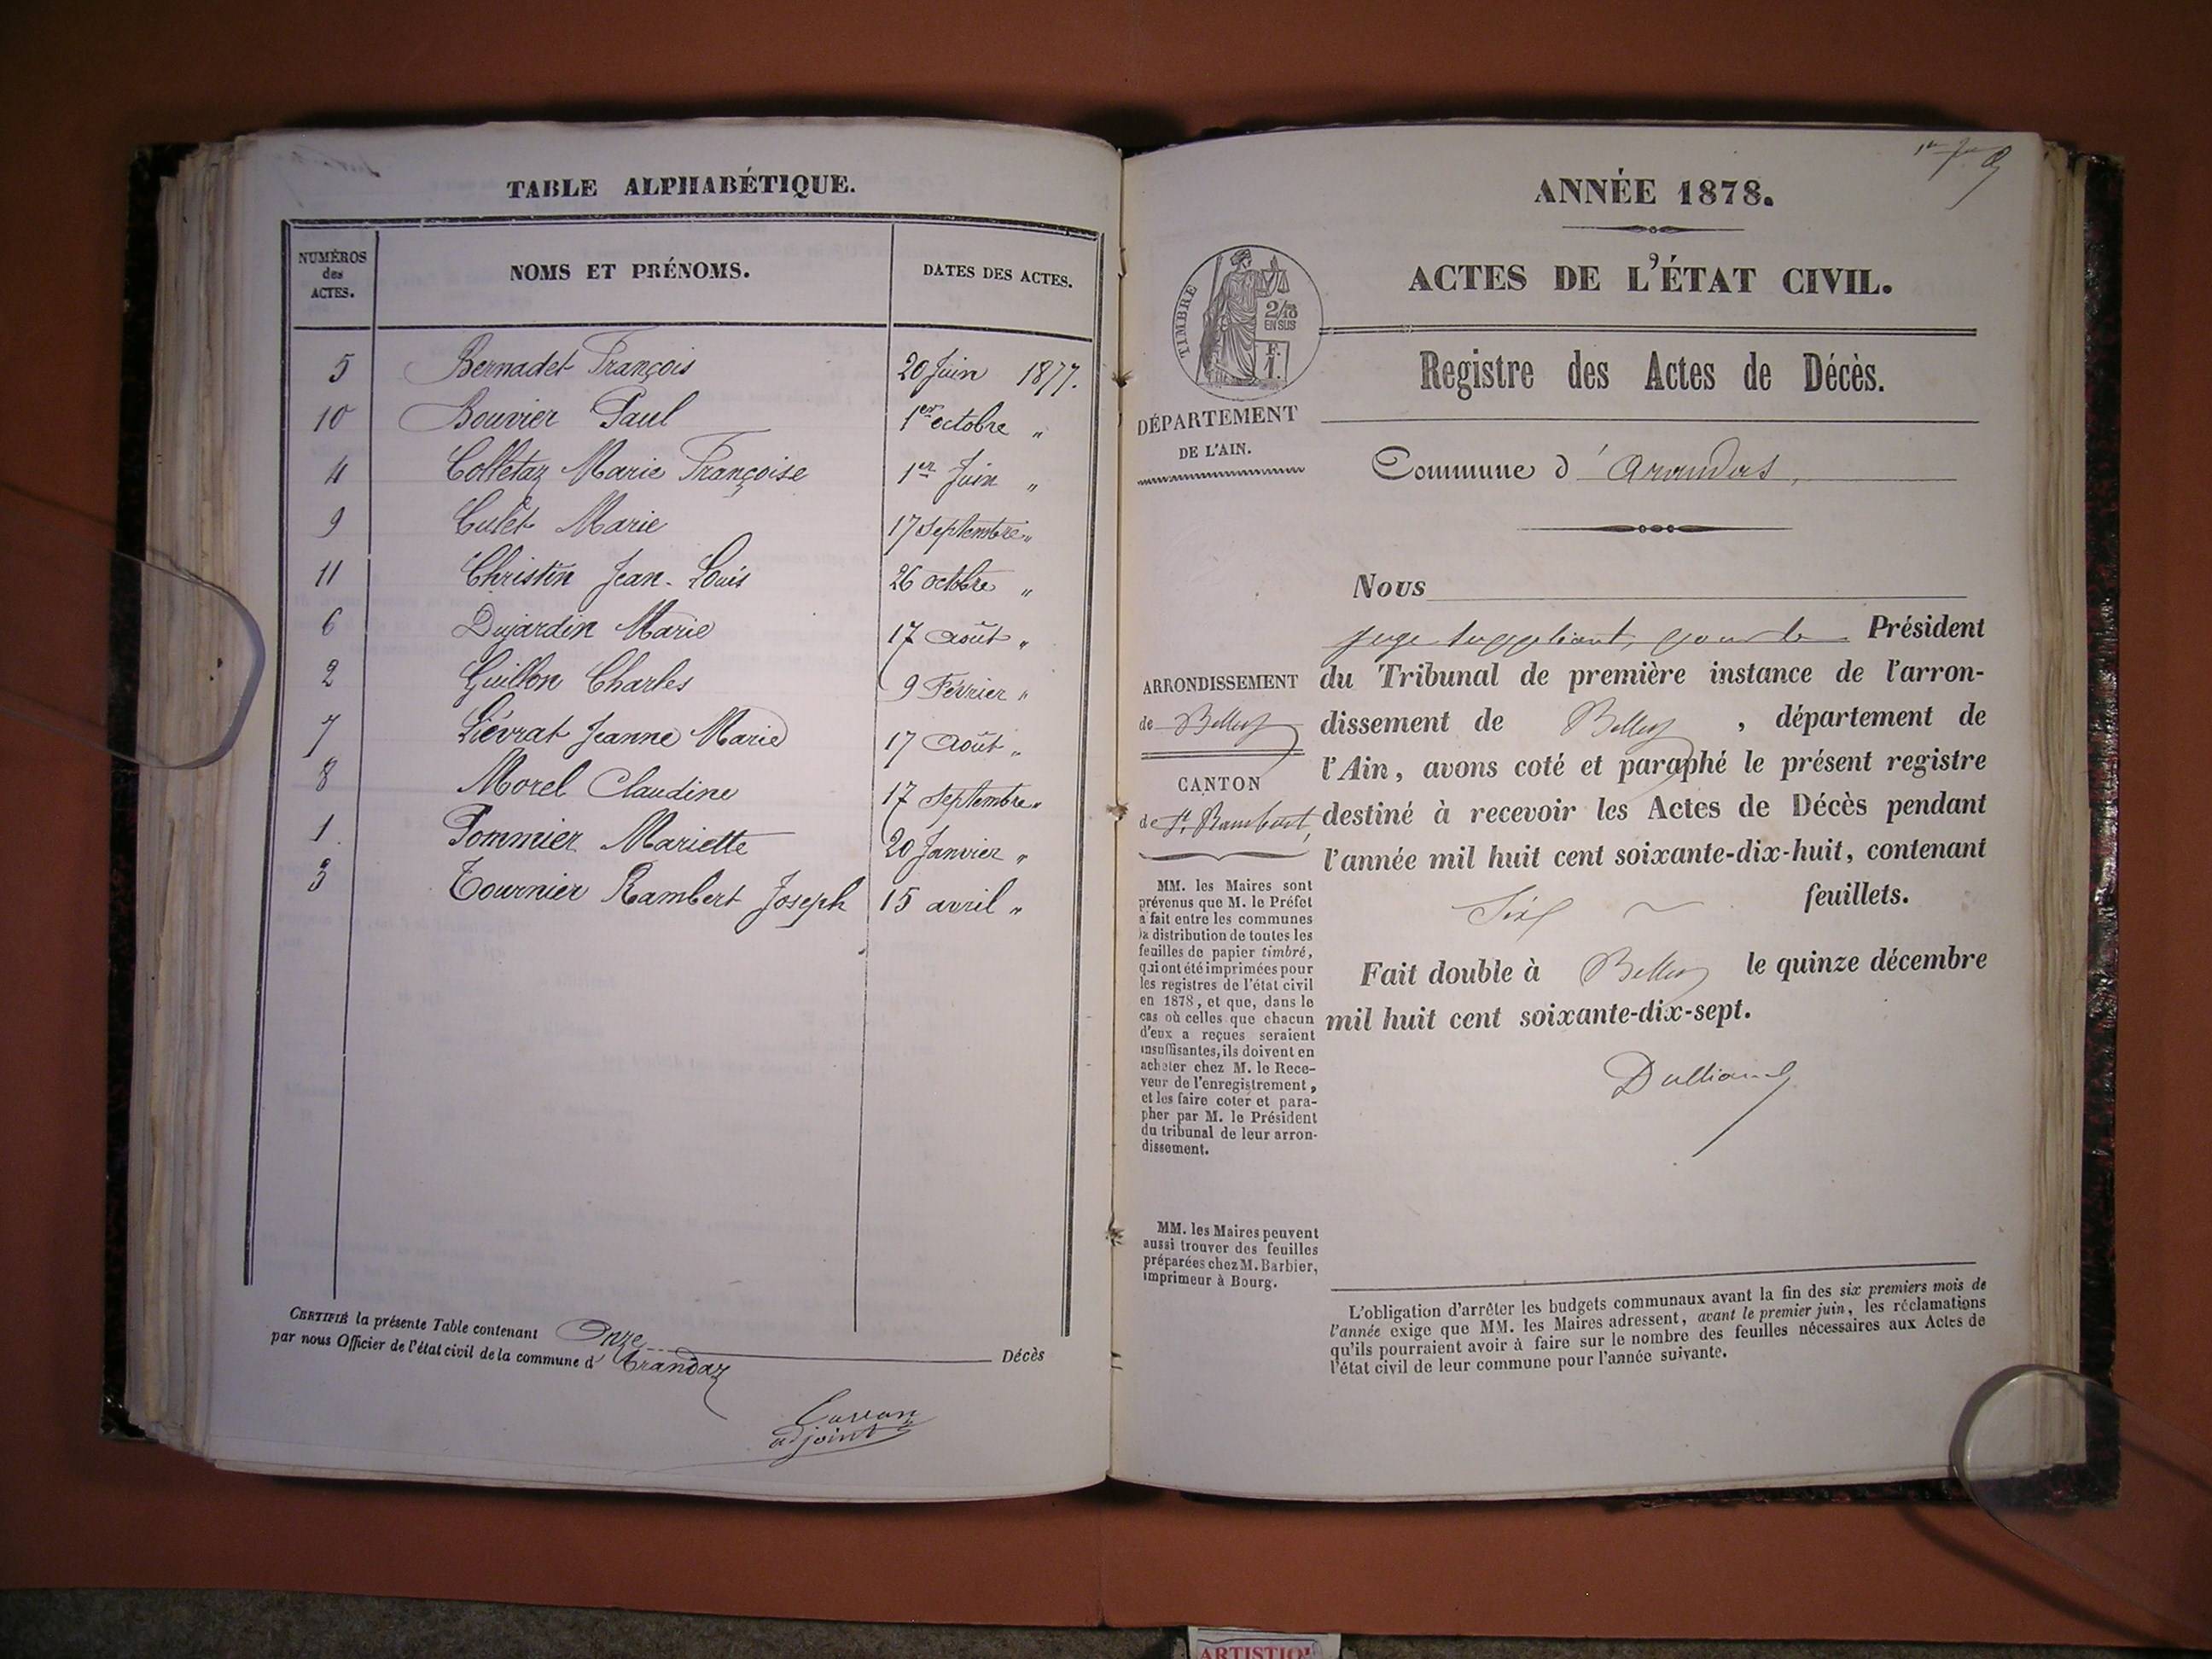 TABLE ALPHABÉTIQUE.
NUMÉROS des ACTES. NOMS ET PRÉNOMS. DATES DES ACTES.
5 Bernadet François 20 Juin 1877.
10 Bouvier Paul 1er octobre "
4 Colletaz Marie Françoise 1er Juin "
9 Culet Marie 17 Septembre "
11 Christin Jean-Louis 26 octobre "
6 Dujardin Marie 17 Août "
2 Guillon Charles 9 Février "
7 Liévrat Jeanne Marie 17 Août "
8 Morel Claudine 17 Septembre "
1. Pommier Mariette 20 Janvier "
3 Tournier Rambert Joseph 15 avril "
CERTIFIÉ la présente Table contenant Onze Décès
par nous Officier de l'état civil de la commune d' Arandaz
adjoint
ANNÉE 1878.
ACTES DE L'ÉTAT CIVIL.
TIMBRE
2/10
EN SUS
F.
1.
Registre des Actes de Décès.
DÉPARTEMENT
DE L'AIN.
Commune d' Arandas,
Nous
juge suppléant, pour le Président
du Tribunal de première instance de l'arron-
dissement de Belley, département de
l'Ain, avons coté et paraphé le présent registre
destiné à recevoir les Actes de Décès pendant
l'année mil huit cent soixante-dix-huit, contenant
Six feuillets.
Fait double à Belley le quinze décembre
mil huit cent soixante-dix-sept.
ARRONDISSEMENT
de Belley
CANTON
de St. Rambert,
MM. les Maires sont
prévenus que M. le Préfet
a fait entre les communes
la distribution de toutes les
feuilles de papier timbré,
qui ont été imprimées pour
les registres de l'état civil
en 1878, et que, dans le
cas où celles que chacun
d'eux a reçues seraient
insuffisantes, ils doivent en
acheter chez M. le Rece-
veur de l'enregistrement,
et les faire coter et para-
pher par M. le Président
du tribunal de leur arron-
dissement.
MM. les Maires peuvent
aussi trouver des feuilles
préparées chez M. Barbier,
imprimeur à Bourg.
L'obligation d'arrêter les budgets communaux avant la fin des six premiers mois de
l'année exige que MM. les Maires adressent, avant le premier juin, les réclamations
qu'ils pourraient avoir à faire sur le nombre des feuilles nécessaires aux Actes de
l'état civil de leur commune pour l'année suivante.